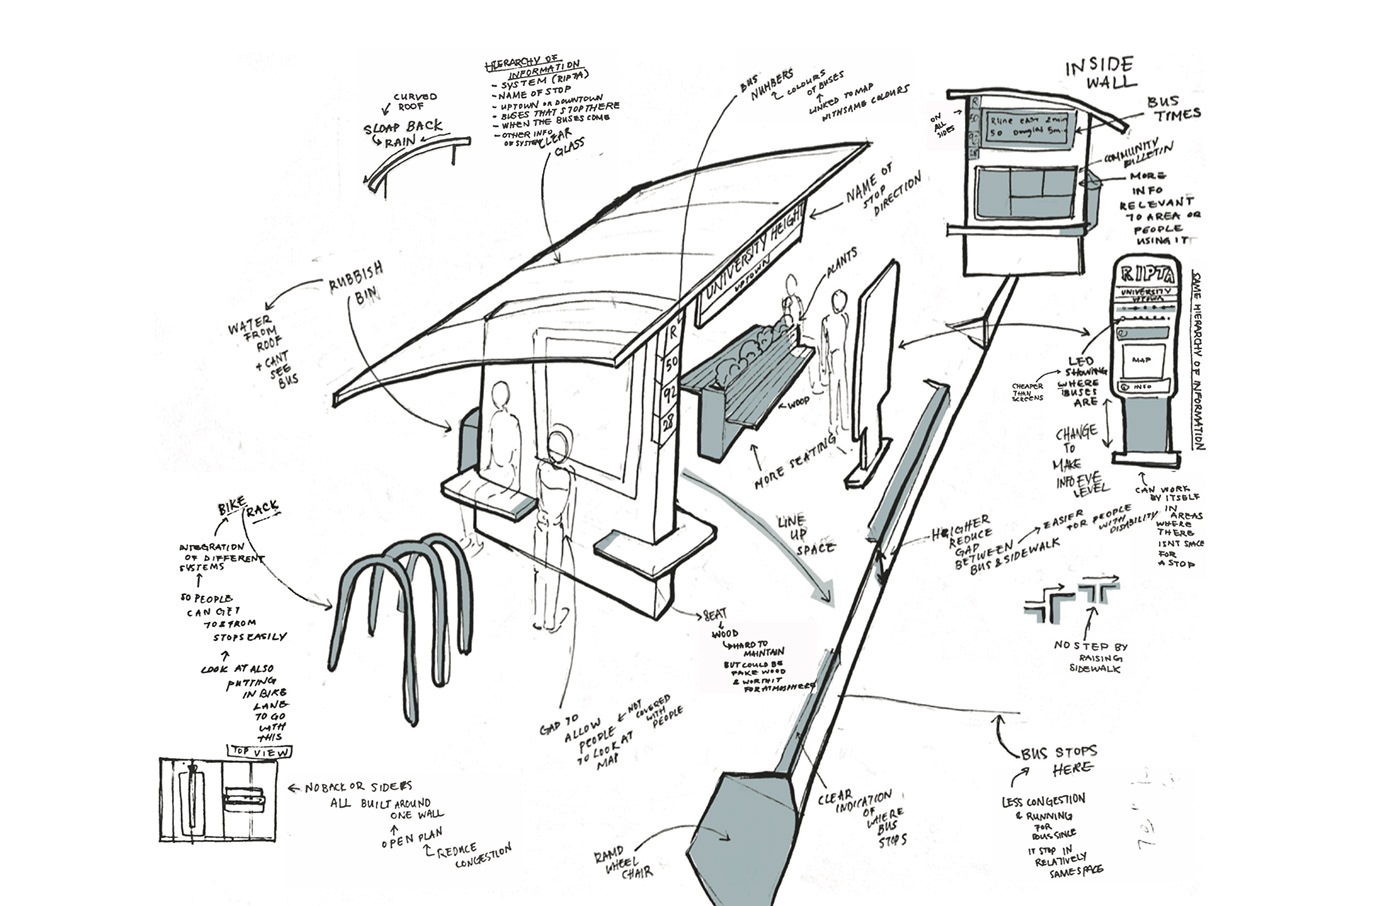 HIERARCHY OF
INFORMATION
- SYSTEM (RIPTA)
- NAME OF STOP
- UPTOWN OR DOWNTOWN
- BUSES THAT STOP THERE
- WHEN THE BUSES COME
- OTHER INFO
OF SYSTEM
CLEAR
GLASS
CURVED
ROOF
SLOAP BACK
RAIN
BUS
NUMBERS
COLOURS
OF BUSES
LINKED TO MAP
WITH SAME COLOURS
NAME OF
STOP
DIRECTION
INSIDE
WALL
ON
ALL
SIDES
R
50
92
28
R line east 2min
50 Douglas 5m
BUS
TIMES
COMMUNITY
BULLETIN
MORE
INFO
RELEVANT
TO AREA OR
PEOPLE
USING IT
RUBBISH
BIN
WATER
FROM
ROOF
+ CANT
SEE
BUS
UNIVERSITY HEIGHT
UPTOWN
R
50
92
28
PLANTS
WOOD
MORE SEATING
RIPTA
UNIVERSITY
UPTOWN
MAP
INFO
SAME HIERARCHY OF INFORMATION
LED
SHOWING
WHERE
BUSES
ARE
CHEAPER
THAN
SCREENS
CHANGE
TO
MAKE
INFO EYE
LEVEL
CAN WORK
BY ITSELF
IN
AREAS
WHERE
THERE
ISNT SPACE
FOR
A STOP
LINE
UP
SPACE
HEIGHER
REDUCE
GAP
BETWEEN
BUS & SIDEWALK
EASIER
FOR PEOPLE
WITH DISABILITY
NO STEP BY
RAISING
SIDEWALK
BIKE
RACK
INTEGRATION
OF DIFFERENT
SYSTEMS
SO PEOPLE
CAN GET
TO & FROM
STOPS EASILY
LOOK AT ALSO
PUTTING
IN BIKE
LANE
TO GO
WITH
THIS
TOP VIEW
NO BACK OR SIDERS
ALL BUILT AROUND
ONE WALL
OPEN PLAN
REDUCE
CONGESTION
SEAT
WOOD
HARD TO
MAINTAIN
BUT COULD BE
FAKE WOOD
& WORTH IT
FOR ATMOSPHERE
GAP TO
ALLOW
PEOPLE
TO LOOK AT
MAP
NOT
COVERED
WITH
PEOPLE
RAMP
WHEEL
CHAIR
CLEAR
INDICATION
OF
WHERE
BUS
STOPS
BUS STOPS
HERE
LESS CONGESTION
& RUNNING
FOR
BUS SINCE
IT STOP IN
RELATIVELY
SAME SPACE